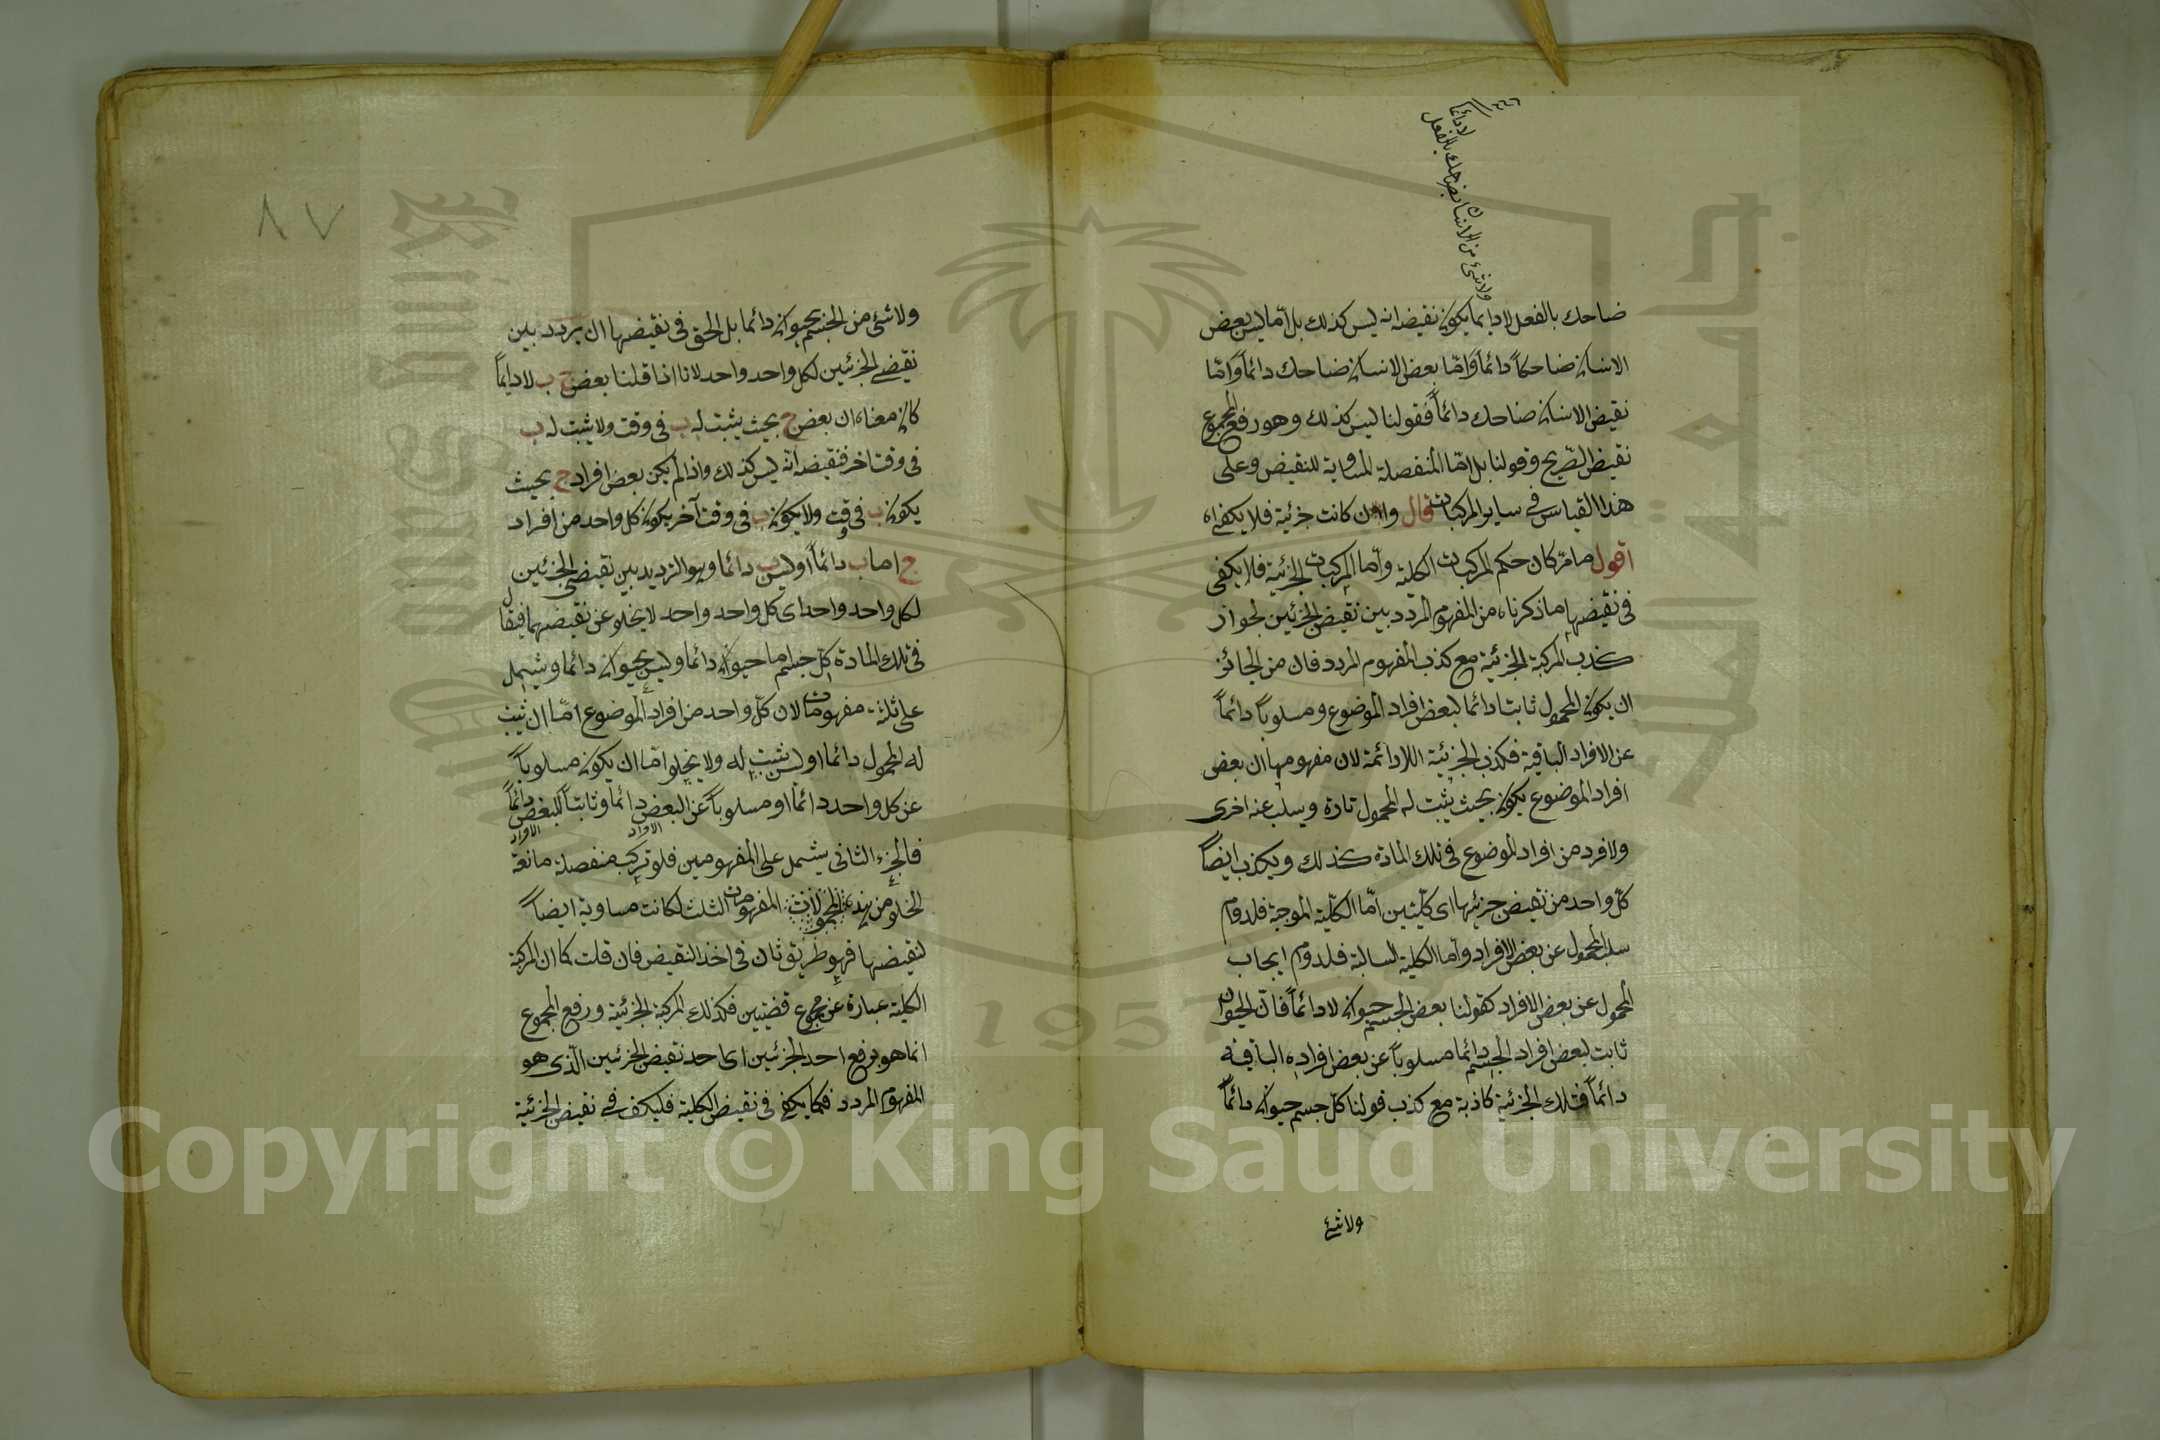 لا دائما
ولا شئ من الانسان بضاحك بالفعل
ضاحك بالفعل لا دايما يكون نقيضه انه ليس كذلك بل امّا ليس بعض
الانسان ضاحكاً دائماً وامّا بعض الانسان ضاحك دائماً وامّا
نقيض الانسان ضاحك دائماً فقولنا ليس كذلك وهو رفع المجموع
نقيض الصّريح وقولنا بل امّا المنفصلة المساوية للنقيض وعلى
هذا القياس في ساير المركبات قال وان كانت جزئية فلا يكفي
اقول ما مرّ كان حكم المركبات الكلية وأما المركبات الجزئية فلا يكفى
فى نقيضها ما ذكرناه من المفهوم المردد بين نقيض الجزئين لجواز
كذب المركبة الجزئية مع كذب المفهوم المردد فان من الجائز
ان يكون المحمول ثابتا دائما لبعض افراد الموضوع ومسلوباً دائماً
عن الافراد الباقية فكذب الجزئية اللادائمة لان مفهومها ان بعض
افراد الموضوع يكون بحيث يثبت له المحمول تارة ويسلب عنه اخرى
ولا فرد من افراد الموضوع فى تلك المادة كذلك ويكذب ايضاً
كلّ واحد من نقيض جزئيها اى كليّتين امّا الكلّية الموجبة فلدوام
سلب المحمول عن بعض الافراد وأما الكلية السالبة فلدوام ايجاب
المحمول عن بعض الافراد كقولنا بعض الجسم حيوان لا دائماً فانّ الحيوان
ثابت لبعض افراد الجسم دائما مسلوباً عن بعض افراده الباقية
دائماً فتلك الجزئية كاذبة مع كذب قولنا كلّ جسم حيوان دائماً
ولا شئ
٨٧
ولا شئ من الجسم بحيوان دائما بل الحق فى نقيضها ان يردد بين
نقيضى الجزئين لكل واحد واحد لانا اذا قلنا بعض ج ب لا دايماً
كان معناه ان بعض ج بحيث يثبت له ب فى وقت ولا يثبت له ب
فى وقت اخر فنقيضه انّه ليس كذلك واذا لم يكن بعض افراد ج بحيث
يكون ب فى وقت ولا يكون ب فى وقت آخر يكون كل واحد من افراد
ج اما ب دائماً او ليس ب دائما وهو الترديد بين نقيضى الجزئين
لكل واحد واحد اى كل واحد واحد لا يخلو عن نقيضهما فيقال
فى تلك المادة كلّ جسم اما حيوان دائما وليس بحيوان دائما ويشمل
على ثلثة مفهومات لان كلّ واحد من افراد الموضوع امّا ان ثبت
له المحمول دائما او ليس يثبت له ولا يخلوا امّا ان يكون مسلوباً
عن كل واحد دائماً او مسلوباً عن البعض دائماً وثابتاً للبعض دائماً
الافراد الافراد
فالجزء الثانى يشمل على المفهومين فلو تركب منفصلة مانعة
الخلو من هذه المفهومات الثلث لكانت مساوية ايضاً
لنقيضها فهو طريق ثان فى اخذ النقيض فان قلت كما ان المركبة
الكلية عبارة عن مجموع قضيتين فكذلك المركبة الجزئية ورفع المجموع
انما هو برفع احد الجزئين اى احد نقيض الجزئين الّذى هو
المفهوم المردد فكما يكفى فى نقيض الكلية فليكف في نقيض الجزئية
1957
Copyright © King Saud University